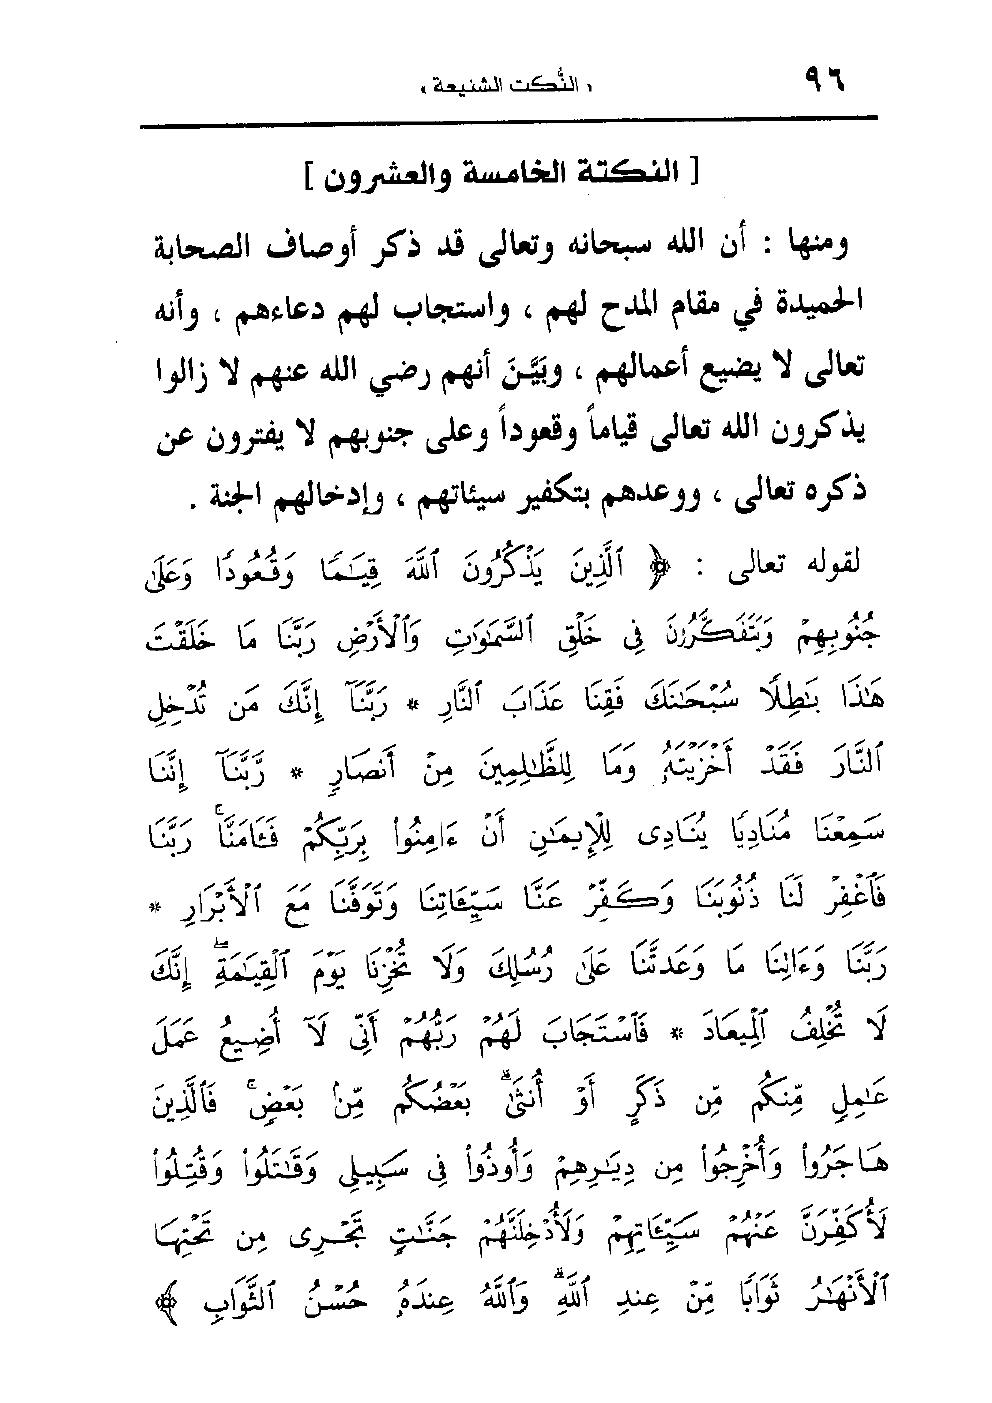 ٩٦
« النُّكت الشنيعة »
[ النكتة الخامسة والعشرون ]
ومنها : أن الله سبحانه وتعالى قد ذكر أوصاف الصحابة
الحميدة في مقام المدح لهم ، واستجاب لهم دعاءهم ، وأنه
تعالى لا يضيع أعمالهم ، وبَيَّنَ أنهم رضي الله عنهم لا زالوا
يذكرون الله تعالى قياماً وقعوداً وعلى جنوبهم لا يفترون عن
ذكره تعالى ، ووعدهم بتكفير سيئاتهم ، وإدخالهم الجنة .
لقوله تعالى : ﴿ ٱلَّذِينَ يَذْكُرُونَ ٱللَّهَ قِيَٰمًا وَقُعُودًا وَعَلَىٰ
جُنُوبِهِمْ وَيَتَفَكَّرُونَ فِى خَلْقِ ٱلسَّمَٰوَٰتِ وَٱلْأَرْضِ رَبَّنَا مَا خَلَقْتَ
هَٰذَا بَٰطِلًا سُبْحَٰنَكَ فَقِنَا عَذَابَ ٱلنَّارِ * رَبَّنَآ إِنَّكَ مَن تُدْخِلِ
ٱلنَّارَ فَقَدْ أَخْزَيْتَهُۥ وَمَا لِلظَّٰلِمِينَ مِنْ أَنصَارٍ * رَّبَّنَآ إِنَّنَا
سَمِعْنَا مُنَادِيًا يُنَادِى لِلْإِيمَٰنِ أَنْ ءَامِنُوا۟ بِرَبِّكُمْ فَـَٔامَنَّا ۚ رَبَّنَا
فَٱغْفِرْ لَنَا ذُنُوبَنَا وَكَفِّرْ عَنَّا سَيِّـَٔاتِنَا وَتَوَفَّنَا مَعَ ٱلْأَبْرَارِ *
رَبَّنَا وَءَاتِنَا مَا وَعَدتَّنَا عَلَىٰ رُسُلِكَ وَلَا تُخْزِنَا يَوْمَ ٱلْقِيَٰمَةِ ۗ إِنَّكَ
لَا تُخْلِفُ ٱلْمِيعَادَ * فَٱسْتَجَابَ لَهُمْ رَبُّهُمْ أَنِّى لَآ أُضِيعُ عَمَلَ
عَٰمِلٍ مِّنكُم مِّن ذَكَرٍ أَوْ أُنثَىٰ ۖ بَعْضُكُم مِّنۢ بَعْضٍ ۖ فَٱلَّذِينَ
هَاجَرُوا۟ وَأُخْرِجُوا۟ مِن دِيَٰرِهِمْ وَأُوذُوا۟ فِى سَبِيلِى وَقَٰتَلُوا۟ وَقُتِلُوا۟
لَأُكَفِّرَنَّ عَنْهُمْ سَيِّـَٔاتِهِمْ وَلَأُدْخِلَنَّهُمْ جَنَّٰتٍ تَجْرِى مِن تَحْتِهَا
ٱلْأَنْهَٰرُ ثَوَابًا مِّنْ عِندِ ٱللَّهِ ۗ وَٱللَّهُ عِندَهُۥ حُسْنُ ٱلثَّوَابِ ﴾